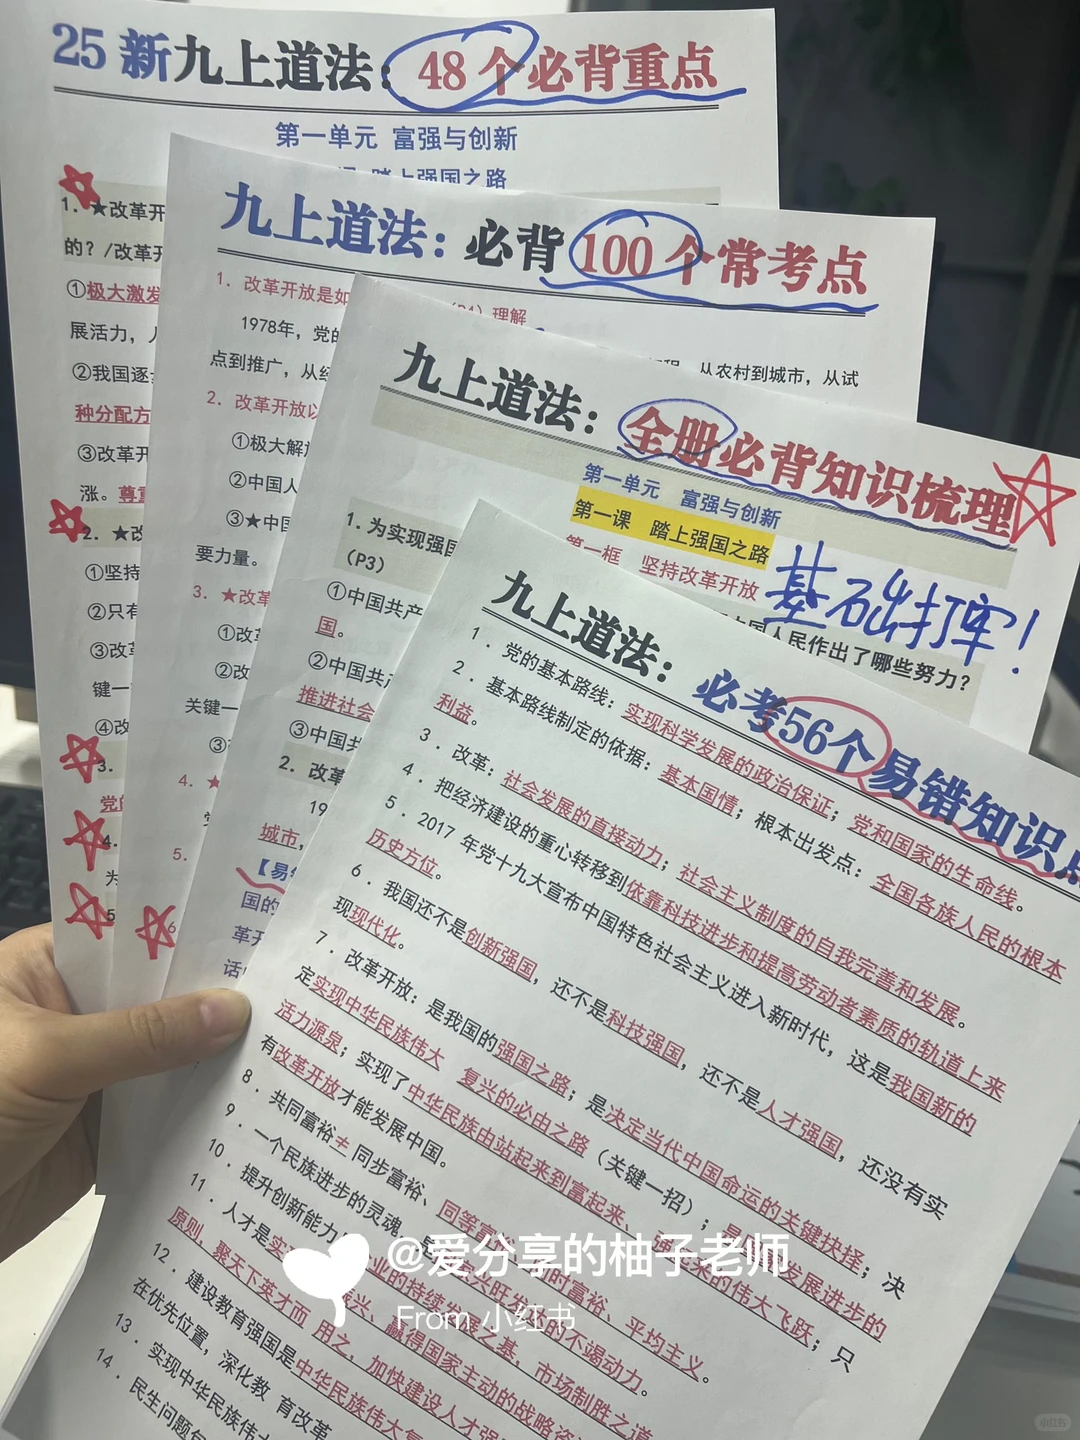 25 新九上道法：48 个必背重点
第一单元 富强与创新
踏上强国之路
1. ★改革开
的？/改革开
①极大激发
展活力，
②我国逐
种分配方
③改革开
涨。尊重
2. ★改
①坚持
②只有
③改革
键一
④改
3.
党的
4.
为
5
九上道法：必背 100 个常考点
1. 改革开放是如
理解
1978年，党的
从农村到城市，从试
点到推广，从经
2. 改革开放以
①极大解放
②中国人
③★中国
要力量。
3. ★改革
①改革
②改
关键一
③
4. ★
5.
6
九上道法：全册必背知识梳理
第一单元 富强与创新
第一课 踏上强国之路
第一框 坚持改革开放
基础打牢！
1. 为实现强国
中国人民作出了哪些努力？
（P3）
①中国共产
国。
②中国共产
推进社会
③中国共
2. 改革
19
城市，
【易错
国的
革开
话
九上道法：必考56个易错知识点
1. 党的基本路线：实现科学发展的政治保证；党和国家的生命线。
2. 基本路线制定的依据：基本国情；根本出发点：全国各族人民的根本
利益。
3. 改革：社会发展的直接动力；社会主义制度的自我完善和发展。
4. 把经济建设的重心转移到依靠科技进步和提高劳动者素质的轨道上来
5. 2017 年党十九大宣布中国特色社会主义进入新时代，这是我国新的
历史方位。
6. 我国还不是创新强国，还不是科技强国，还不是人才强国，还没有实
现现代化。
7. 改革开放：是我国的强国之路；是决定当代中国命运的关键抉择；决
定实现中华民族伟大 复兴的必由之路（关键一招）；是国的发展进步的
活力源泉；实现了中华民族由站起来到富起来、强起来的伟大飞跃；只
有改革开放才能发展中国。
8. 共同富裕≠ 同步富裕、同等富裕、同时富裕、平均主义。
9. 一个民族进步的灵魂，是兴旺发达的不竭动力。
10. 提升创新能力 业的持续发展之基、市场制胜之道
11. 人才是实 振兴、赢得国家主动的战略资
原则，聚天下英才而 用之，加快建设人才强
12. 建设教育强国是中华民族伟大复
在优先位置，深化教 育改革
13. 实现中华民族伟大
14. 民生问题
@爱分享的柚子老师
From 小红书
小红书